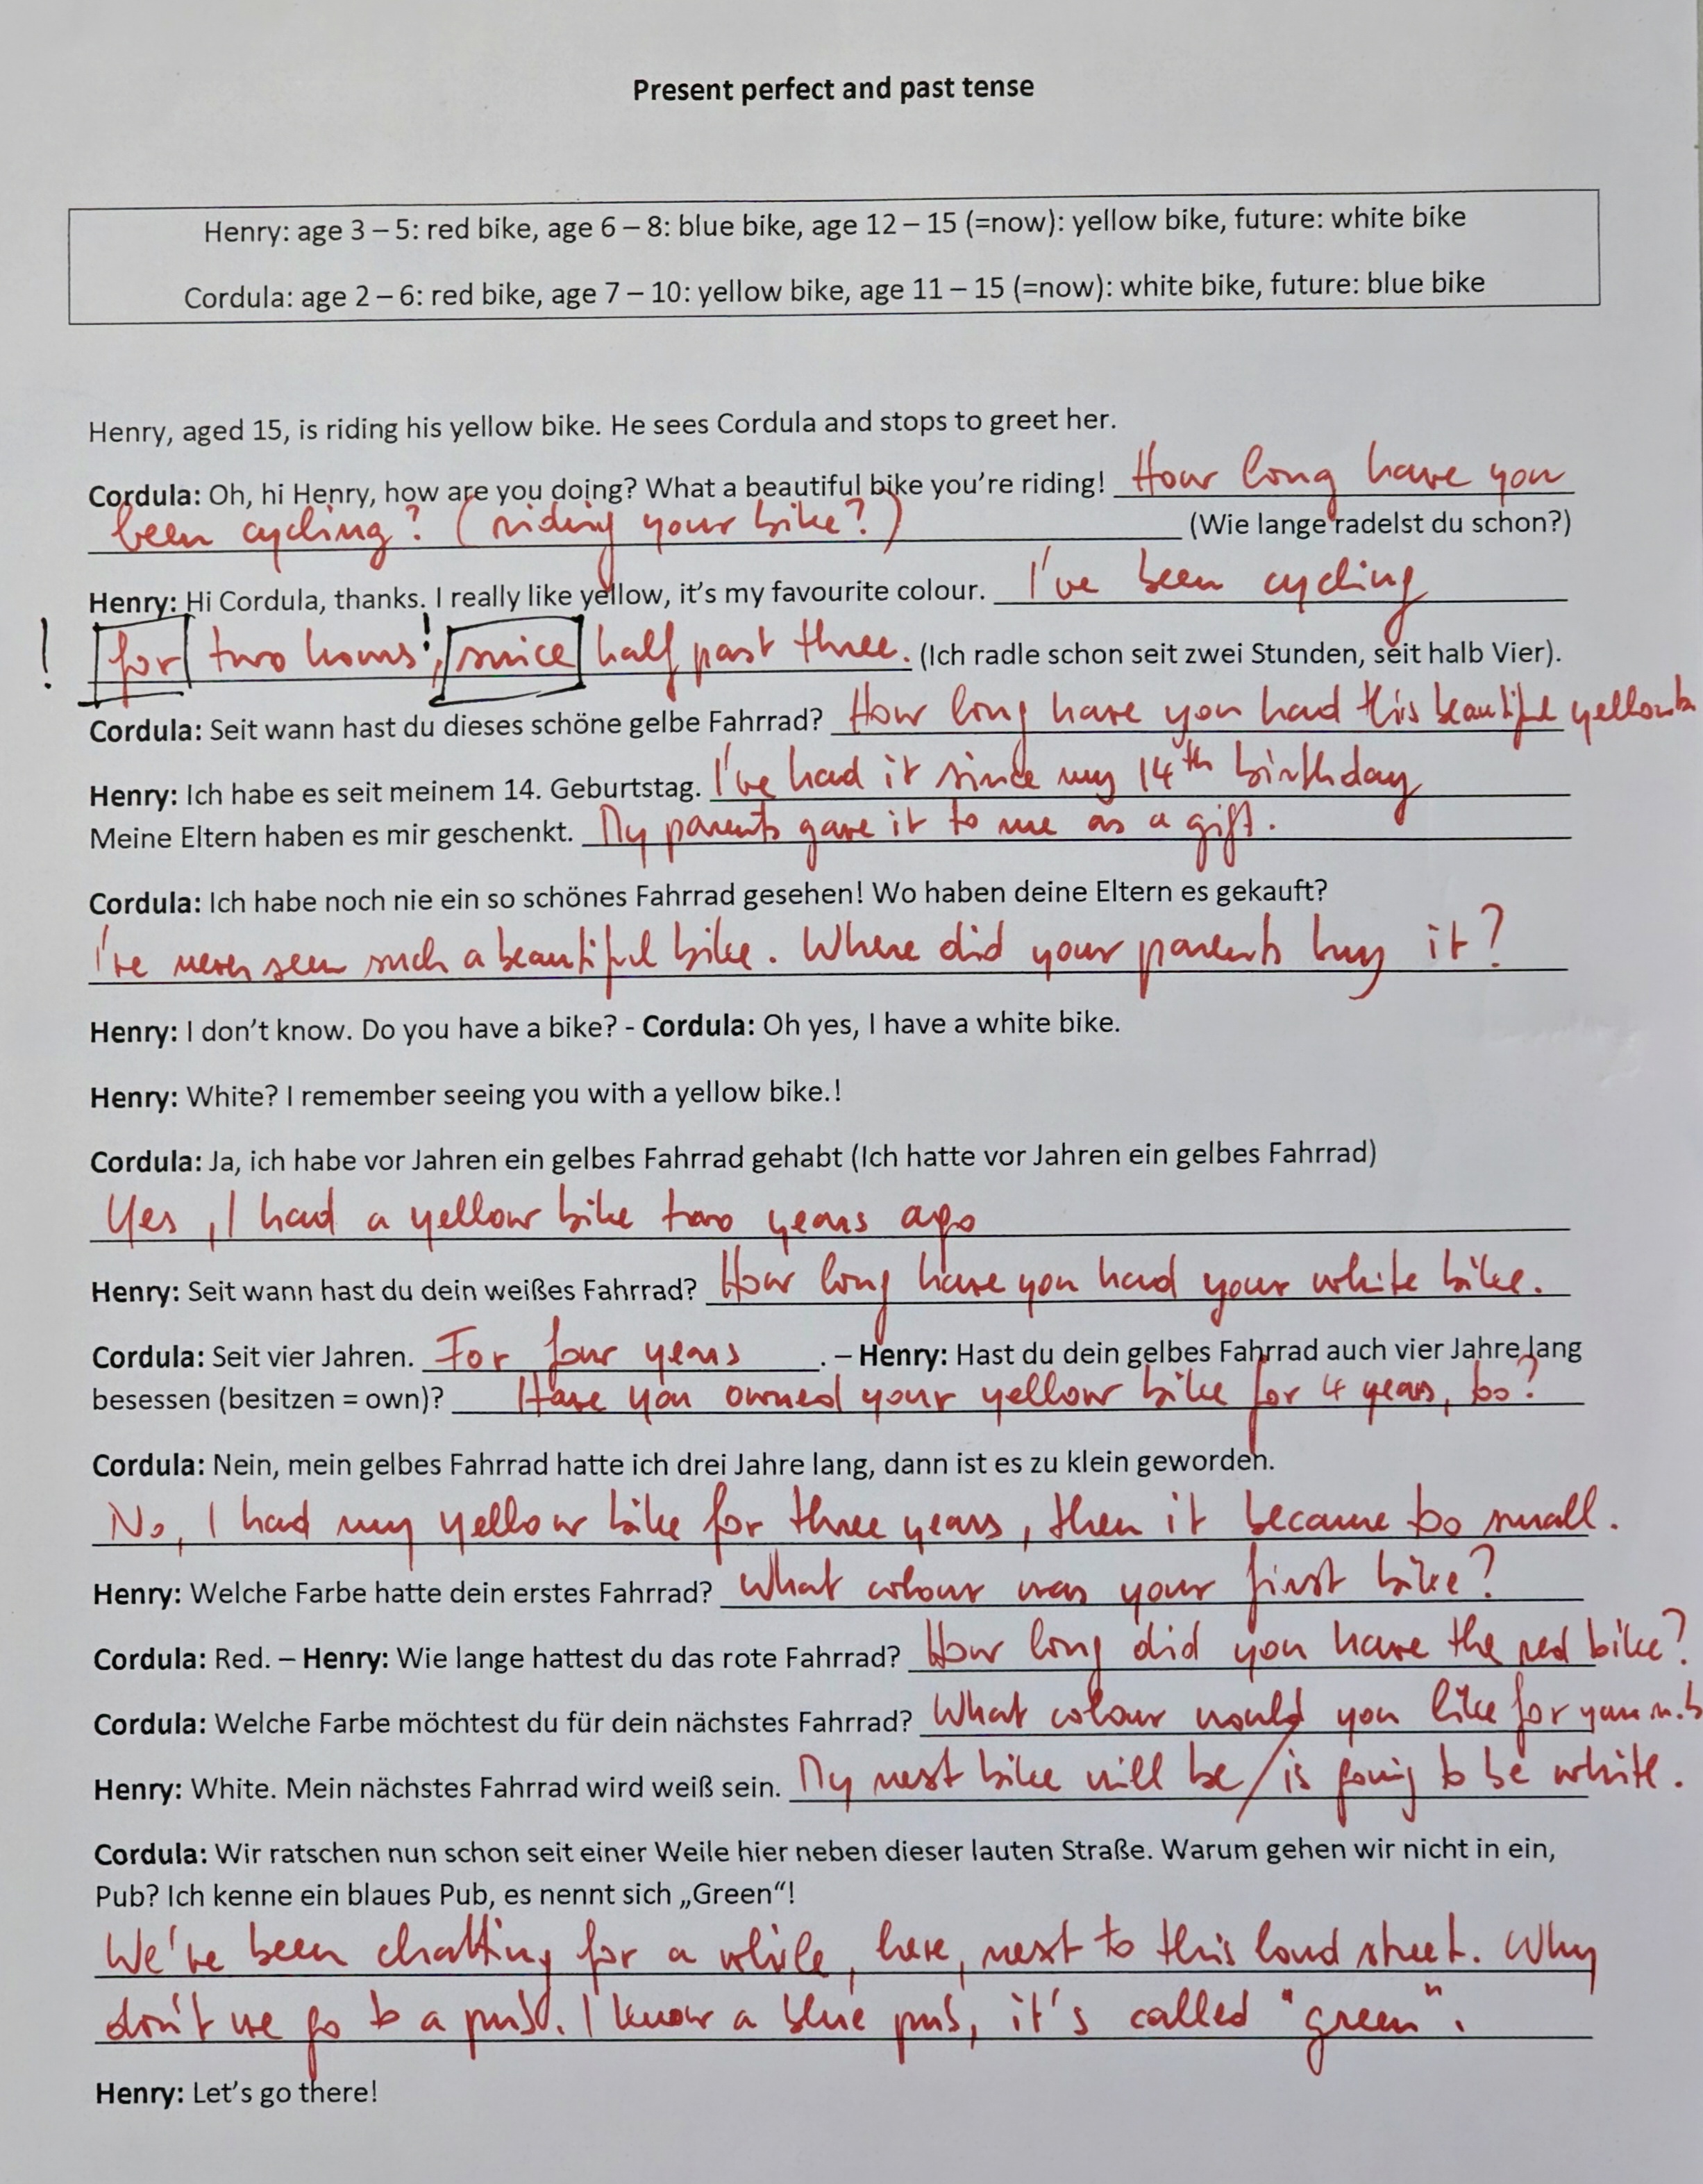 Present perfect and past tense
Henry: age 3 – 5: red bike, age 6 – 8: blue bike, age 12 – 15 (=now): yellow bike, future: white bike
Cordula: age 2 – 6: red bike, age 7 – 10: yellow bike, age 11 – 15 (=now): white bike, future: blue bike
Henry, aged 15, is riding his yellow bike. He sees Cordula and stops to greet her.
Cordula: Oh, hi Henry, how are you doing? What a beautiful bike you're riding! How long have you
been cycling? (riding your bike?) (Wie lange radelst du schon?)
Henry: Hi Cordula, thanks. I really like yellow, it's my favourite colour. I've been cycling
! for two hours, ! since half past three. (Ich radle schon seit zwei Stunden, seit halb Vier).
Cordula: Seit wann hast du dieses schöne gelbe Fahrrad? How long have you had this beautiful yellow b
Henry: Ich habe es seit meinem 14. Geburtstag. I've had it since my 14th birthday
Meine Eltern haben es mir geschenkt. My parents gave it to me as a gift.
Cordula: Ich habe noch nie ein so schönes Fahrrad gesehen! Wo haben deine Eltern es gekauft?
I've never seen such a beautiful bike. Where did your parents buy it?
Henry: I don't know. Do you have a bike? - Cordula: Oh yes, I have a white bike.
Henry: White? I remember seeing you with a yellow bike.!
Cordula: Ja, ich habe vor Jahren ein gelbes Fahrrad gehabt (Ich hatte vor Jahren ein gelbes Fahrrad)
Yes, I had a yellow bike two years ago
Henry: Seit wann hast du dein weißes Fahrrad? How long have you had your white bike.
Cordula: Seit vier Jahren. For four years. – Henry: Hast du dein gelbes Fahrrad auch vier Jahre lang
besessen (besitzen = own)? Have you owned your yellow bike for 4 years, too?
Cordula: Nein, mein gelbes Fahrrad hatte ich drei Jahre lang, dann ist es zu klein geworden.
No, I had my yellow bike for three years, then it became too small.
Henry: Welche Farbe hatte dein erstes Fahrrad? What colour was your first bike?
Cordula: Red. – Henry: Wie lange hattest du das rote Fahrrad? How long did you have the red bike?
Cordula: Welche Farbe möchtest du für dein nächstes Fahrrad? What colour would you like for your n. b
Henry: White. Mein nächstes Fahrrad wird weiß sein. My next bike will be / is going to be white.
Cordula: Wir ratschen nun schon seit einer Weile hier neben dieser lauten Straße. Warum gehen wir nicht in ein,
Pub? Ich kenne ein blaues Pub, es nennt sich „Green“!
We've been chatting for a while, here, next to this loud street. Why
don't we go to a pub. I know a blue pub, it's called "green".
Henry: Let's go there!